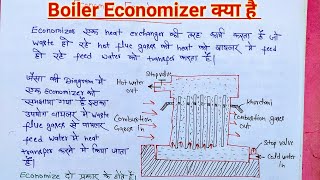 Boiler Economizer क्या है
Economizer एक heat exchanger की तरह कार्य करता है जो
waste हो रहे hot flue gases की heat को बायलर में feed
हो रहे feed water को transfer करता है।
जैसा की Diagram में
एक Economizer को
समझाया गया है इसका
उपयोग बायलर में waste
flue gases से बायलर
feed water में heat
transfer करने में किया जाता
है।
Economizer दो प्रकार के होते हैं
Stop valve
Hot water
out
Combustion
Gases In
Combustion gases
out
Stop valve
Cold water
in